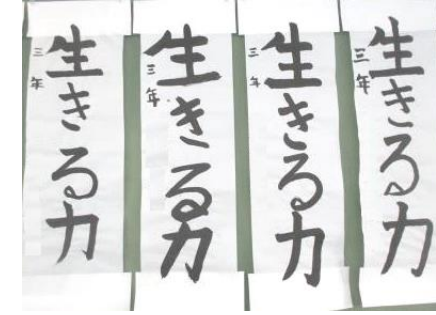 生きる力
三年
生きる力
三年
生きる力
三年
生きる力
三年